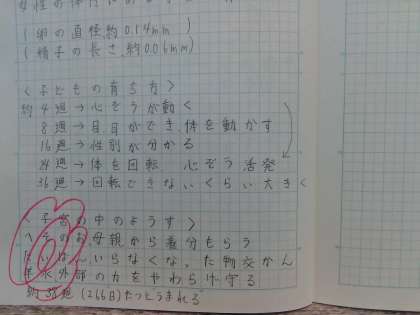 女性の体内にある
(卵の直径、約0.14mm)
(精子の長さ、約0.06mm)
<子どもの育ち方>
約4週→心ぞうが動く
8週→目、耳ができ、体を動かす
16週→性別が分かる
24週→体を回転 心ぞう活発
36週→回転できないくらい大きく
<子宮の中のようす>
へそのお母親から養分もらう
たいばんいらなくなった物交かん
羊水外部の力をやわらげ守る
約38週(266日)たつとうまれる